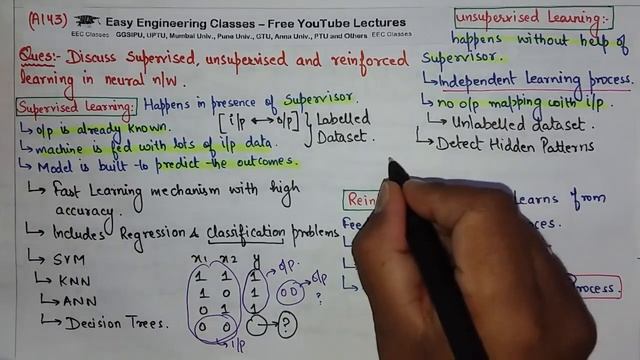 (A143)
Easy Engineering Classes – Free YouTube Lectures
EEC Classes GGSIPU, UPTU, Mumbai Univ., Pune Univ., GTU, Anna Univ., PTU and Others EEC Classes
Ques:- Discuss Supervised, unsupervised and reinforced
learning in neural n/w.
Supervised Learning: Happens in presence of Supervisor.
↳ o/p is already known. [i/p ↔ o/p] } Labelled
↳ machine is fed with lots of i/p data. Dataset.
↳ Model is built to predict the outcomes.
↳ Fast Learning mechanism with high
accuracy.
↳ Includes Regression & classification problems
↳ SVM
↳ KNN
↳ ANN
↳ Decision Trees.
x1 x2 y o/p
1 1 1
1 0 1 00 o/p
0 1 1 ?
0 0 → ?
i/p
unsupervised Learning:-
happens without help of
Supervisor.
↳ Independent learning process.
↳ no o/p mapping with i/p.
↳ Unlabelled dataset.
↳ Detect Hidden Patterns
Learns from
Process.